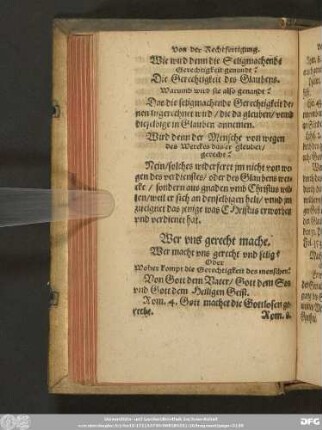 Von der Rechtfertigung.
Wie wird denn die Seligmachende
Gerechtigkeit genandt?
Die Gerechtigkeit des Glaubens.
Warumb wird sie also genandt?
Das die seligmachende Gerechtigkeit de-
nen zugerechnet wird / die da gleuben / vnnd
die im Glauben annemen.
Wird denn der Mensche von wegen
des Werckes das er gleubet /
gerecht?
Nein / solches widerferet jm nicht von we-
gen des verdienstes / oder des Glaubens wer-
cke / sondern aus gnaden vmb Christus wil-
len / weil er sich an denselbigen helt / vnnd jm
zueignet das jenige was Christus erworben
vnd verdienet hat.
Wer vns gerecht mache.
Wer macht vns gerecht vnd selig?
Oder
Woher kompt die Gerechtigkeit des menschen?
Von Gott dem Vater / Gott dem Son
vnd Gott dem Heiligen Geist.
Rom. 4. Gott machet die Gottlosen ge-
rechte.
Rom. 8.
DFG